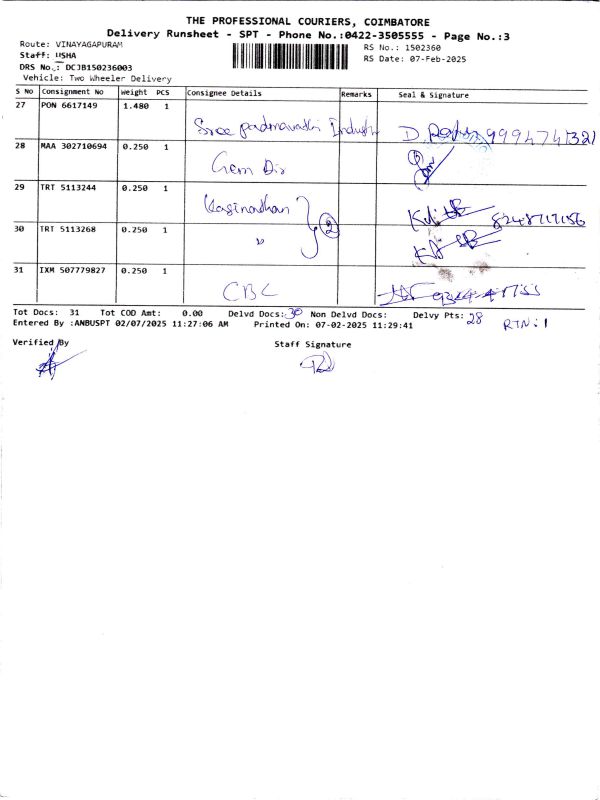 THE PROFESSIONAL COURIERS, COIMBATORE
Delivery Runsheet - SPT - Phone No.:0422-3505555 - Page No.:3
Route: VINAYAGAPURAM
Staff: USHA
DRS No.: DCJB150236003
Vehicle: Two Wheeler Delivery
RS No.: 1502360
RS Date: 07-Feb-2025
S No Consignment No Weight PCS Consignee Details Remarks Seal & Signature
27 PON 6617149 1.480 1
Sree padmavathi 9994741321
28 MAA 302710694 0.250 1
Gem Dis
29 TRT 5113244 0.250 1
Kasinathan 2 8248717156
30 TRT 5113268 0.250 1
"
31 IXM 507779827 0.250 1
CBC
Tot Docs: 31 Tot COD Amt: 0.00 Delvd Docs: 30 Non Delvd Docs: Delvy Pts: 28 RTN: 1
Entered By :ANBUSPT 02/07/2025 11:27:06 AM Printed On: 07-02-2025 11:29:41
Verified By Staff Signature